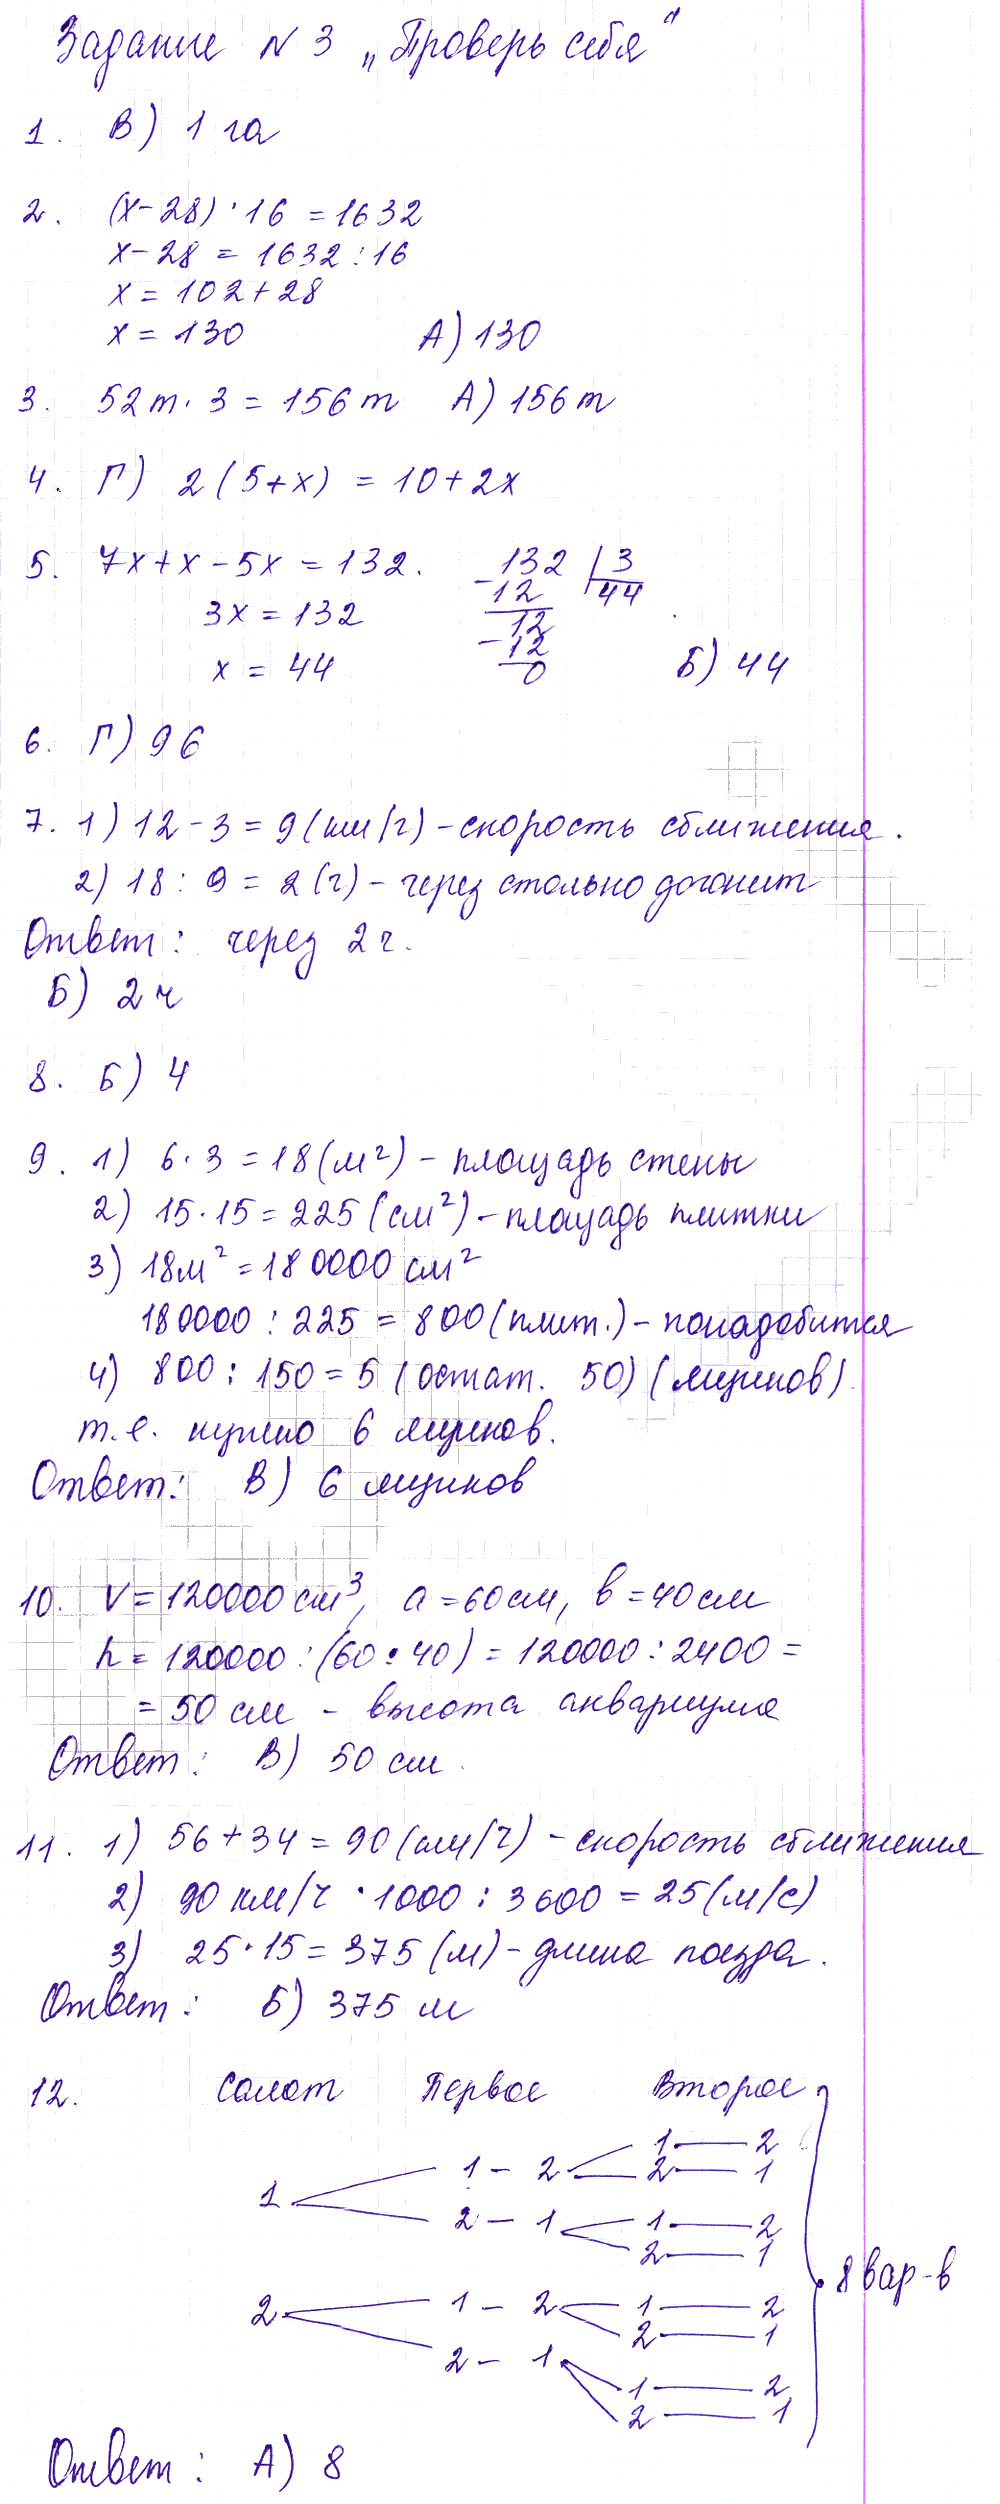 Задание N 3 „Проверь себя"
1. В) 1 га
2. (x-28)·16 = 1632
x-28 = 1632:16
x = 102+28
x = 130 А) 130
3. 52m·3 = 156m А) 156m
4. Г) 2(5+x) = 10+2x
5. 7x+x-5x = 132. 132 | 3
-12 44
3x = 132 12
-12
x = 44 0 Б) 44
6. Г) 96
7. 1) 12-3 = 9 (км/ч) - скорость сближения.
2) 18:9 = 2 (ч) - через столько догонит
Ответ: через 2 ч.
Б) 2 ч
8. Б) 4
9. 1) 6·3 = 18 (м²) - площадь стены
2) 15·15 = 225 (см²) - площадь плитки
3) 18м² = 180000 см²
180000:225 = 800 (плит.) - понадобится
4) 800:150 = 5 (остат. 50) (ящиков)
т.е. нужно 6 ящиков.
Ответ: В) 6 ящиков
10. V = 120000 см³, a = 60 см, b = 40 см
h = 120000:(60·40) = 120000:2400 =
= 50 см - высота аквариума
Ответ: В) 50 см.
11. 1) 56+34 = 90 (км/ч) - скорость сближения
2) 90 км/ч·1000:3600 = 25 (м/с)
3) 25·15 = 375 (м) - длина поезда.
Ответ: Б) 375 м
12. Салат Первое Второе
1 - 2
1 - 2 2 - 1
1
2 - 1 1 - 2
2 - 1
1 - 2 1 - 2 8 вар-в
2 2 - 1
2 - 1
1 - 2
2 - 1
Ответ: А) 8